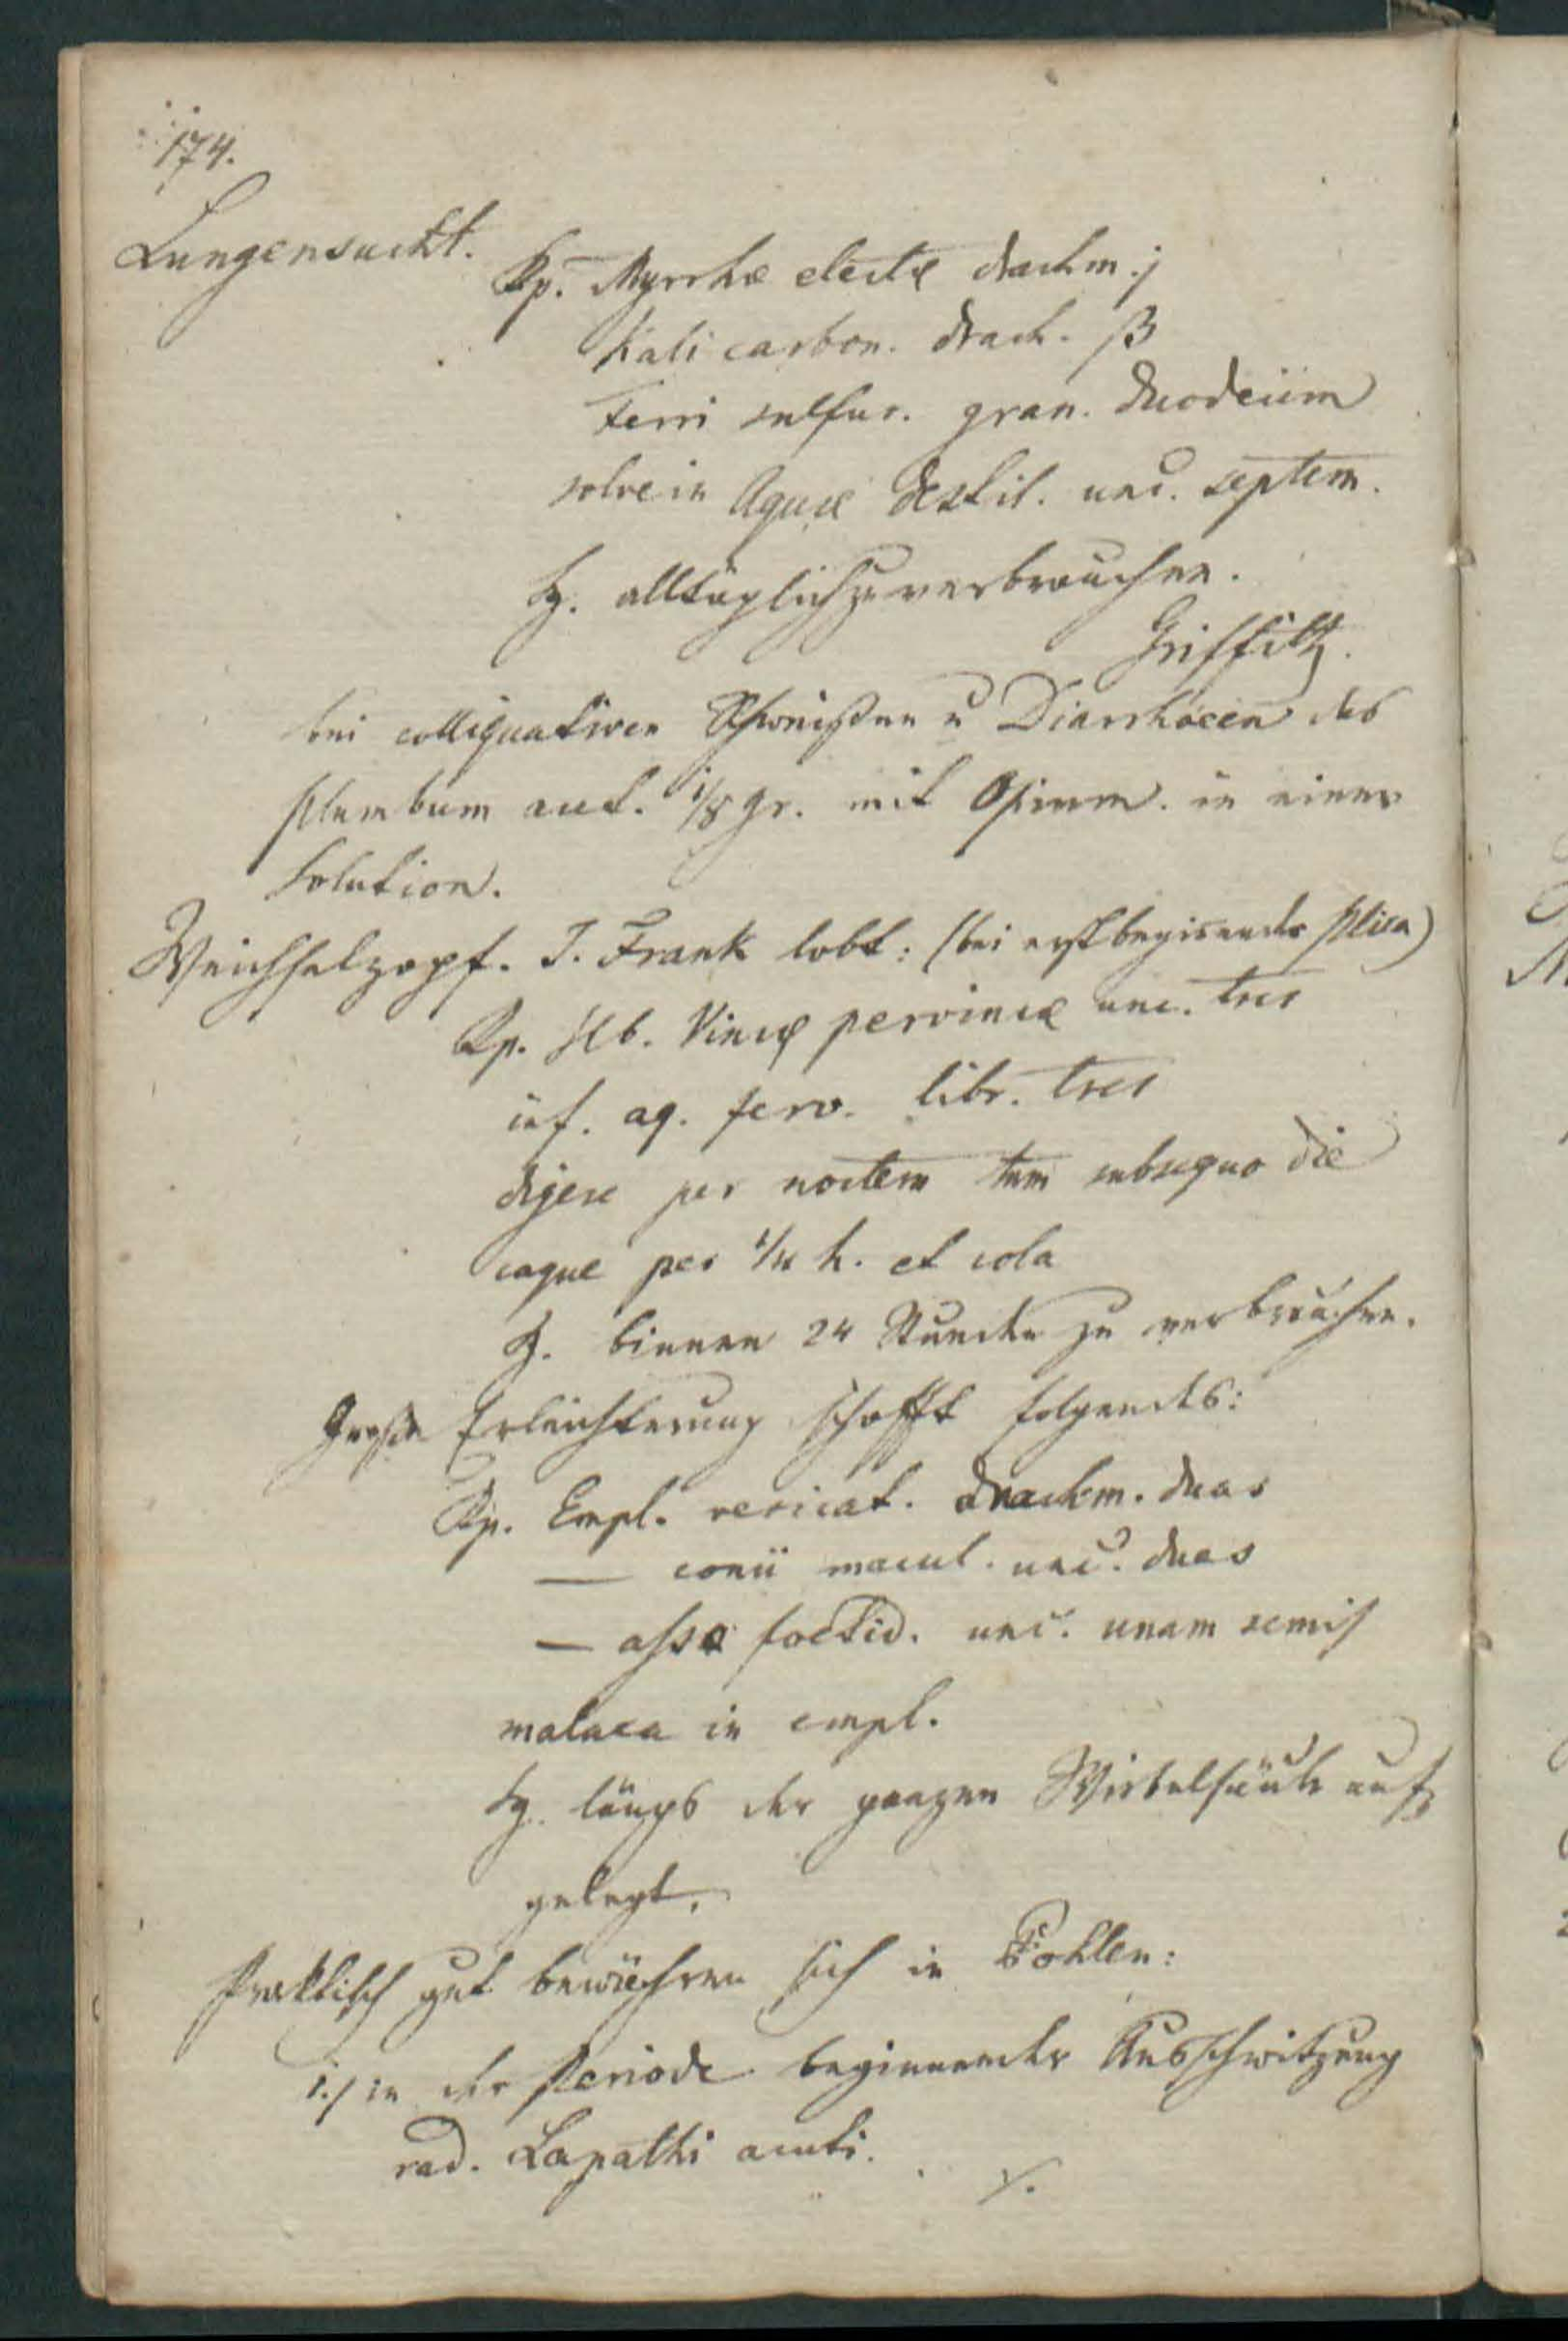 174.
Lungensucht.
Rp. Myrrhæ electæ drachm. j
Kali carbon. drach. ß
Ferri sulfur. gran. duodecim
solve in Aquæ destil. unc. septem.
S. alltäglich zu verbrauchen.
Griffith.
bei colliquativen Schweißen u Diarrhöeen das
Plumbum acet. 1/8 gr. mit Opium in einer
Solution.
Weichselzopf. J. Frank lobt: (bei erst beginender Plica)
Rp. Hb. Vincæ pervincæ unc. tres
inf. aq. ferv. libr. tres
digere per noctem tum subsequo die
coque per 1/4 h. et cola
S. binnen 24 Stunden zu verbrauchen.
Große Erleichterung schafft folgendes:
Rp. Empl. vesicat. drachm. duas
— conii macul. unc. duas
— assæ foetid. unc. unam semis
malaxa in empl.
S. längs der ganzen Wirbelsäule auf
gelegt.
Praktisch gut bewähren sich in Pohlen:
1./ in der Periode beginnender Ausschwitzung
rad. Lapathi acuti.